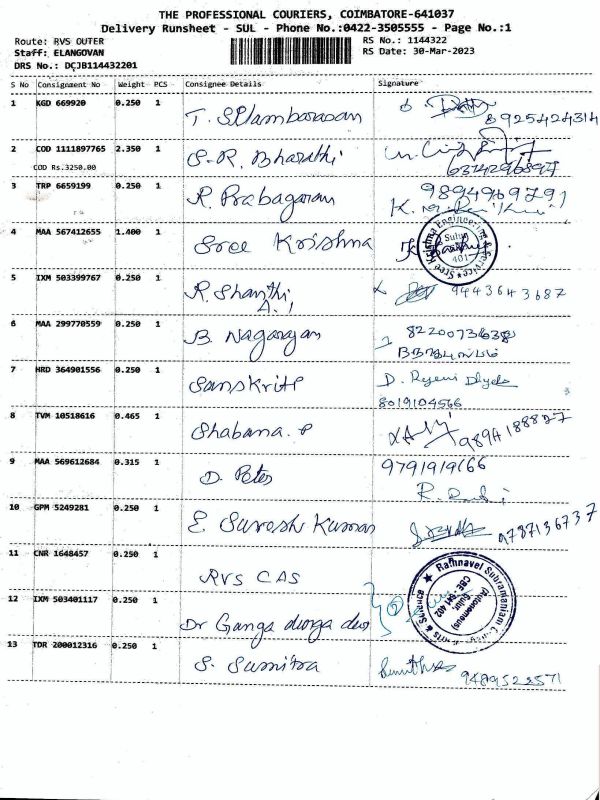 THE PROFESSIONAL COURIERS, COIMBATORE-641037
Delivery Runsheet - SUL - Phone No.:0422-3505555 - Page No.:1
Route: RVS OUTER
RS No.: 1144322
Staff: ELANGOVAN
RS Date: 30-Mar-2023
DRS No.: DCJB114432201
S No Consignment No Weight PCS Consignee Details Signature
1 KGD 669920 0.250 1 T. 8925424314
2 COD 1111897765 2.350 1 S.R. Bharathi
COD Rs.3250.00 6374296897
3 TRP 6659199 0.250 1 R. Prabagaran 9894969791
4 MAA 567412655 1.400 1 Sree Krishna
Sree Krishna Engineering & Service
Sulur
401
5 IXM 503399767 0.250 1 R. Shanthi 9443643687
A.
6 MAA 299770559 0.250 1 B. Nagarajan
7 HRD 364901556 0.250 1 D.
8019104566
8 TVM 10518616 0.465 1 Shabana. P
9 MAA 569612684 0.315 1 D. Peter
10 GPM 5249281 0.250 1 E. Suresh Kumar 9787136737
11 CNR 1648457 0.250 1 RVS CAS
Rathnavel Subramaniam College of Arts & Science
(Autonomous)
Sulur,
CBE - 641 402
12 IXM 503401117 0.250 1 Dr Ganga durga devi
13 TDR 200012316 0.250 1 S. Sumitra 9489522571